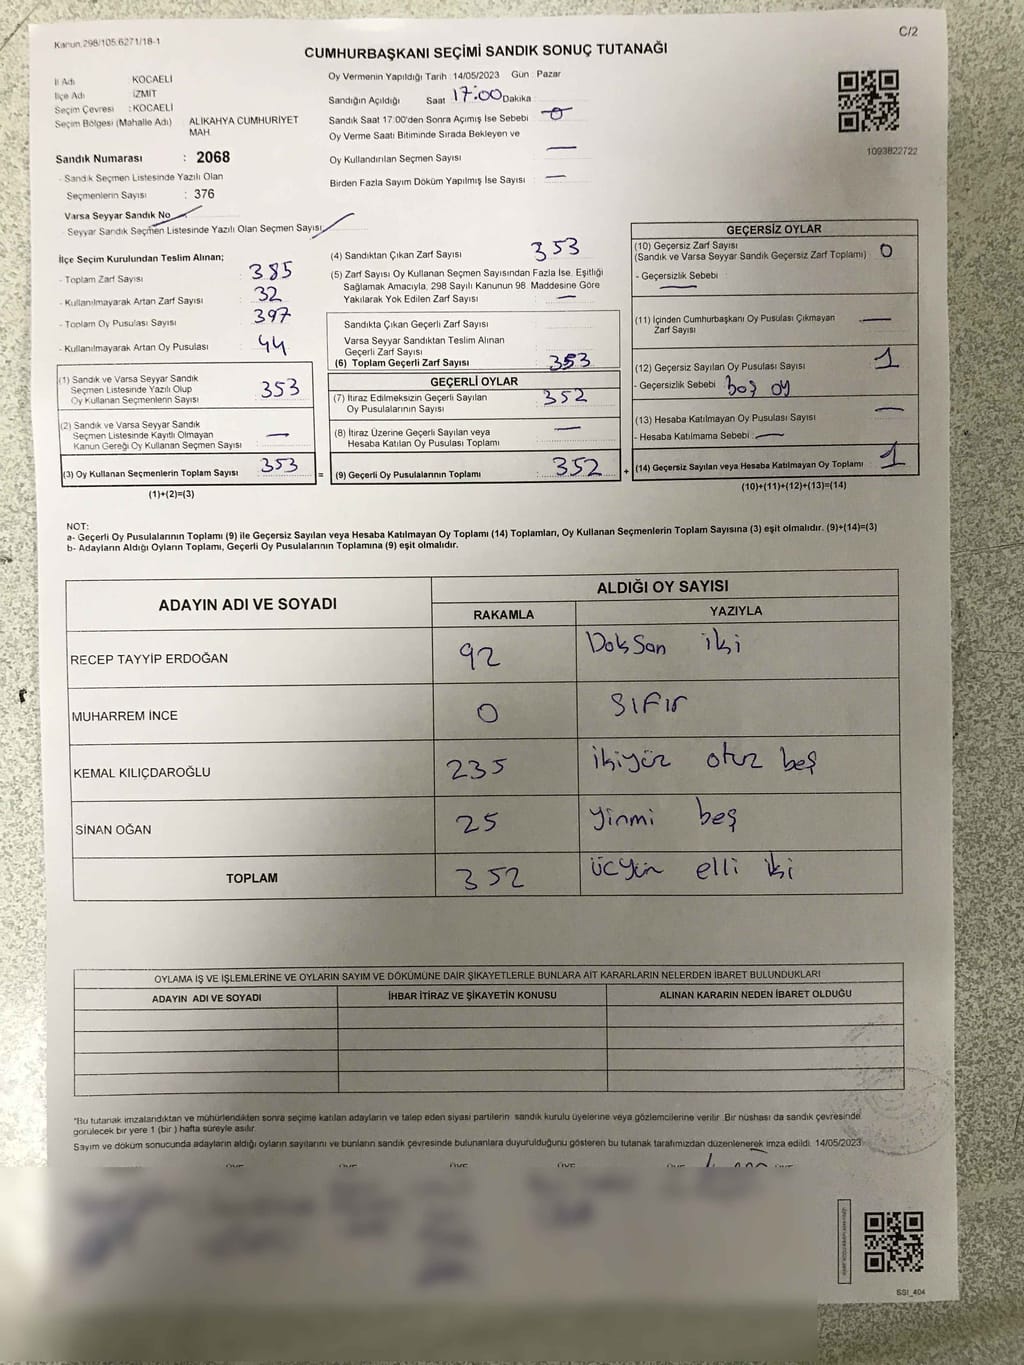 Kanun.298/105.6271/18-1
C/2
CUMHURBAŞKANI SEÇİMİ SANDIK SONUÇ TUTANAĞI
İl Adı KOCAELİ
İlçe Adı İZMİT
Seçim Çevresi : KOCAELİ
Seçim Bölgesi (Mahalle Adı) ALİKAHYA CUMHURİYET MAH.
Sandık Numarası : 2068
- Sandık Seçmen Listesinde Yazılı Olan
Seçmenlerin Sayısı : 376
Varsa Seyyar Sandık No
- Seyyar Sandık Seçmen Listesinde Yazılı Olan Seçmen Sayısı
Oy Vermenin Yapıldığı Tarih : 14/05/2023 Gün : Pazar
Sandığın Açıldığı Saat 17:00 Dakika
Sandık Saat 17:00'den Sonra Açımış İse Sebebi
Oy Verme Saati Bitiminde Sırada Bekleyen ve
Oy Kullandırılan Seçmen Sayısı —
Birden Fazla Sayım Döküm Yapılmış İse Sayısı —
1093822722
İlçe Seçim Kurulundan Teslim Alınan;
- Toplam Zarf Sayısı 385
- Kullanılmayarak Artan Zarf Sayısı 32
- Toplam Oy Pusulası Sayısı 397
- Kullanılmayarak Artan Oy Pusulası 44
(1) Sandık ve Varsa Seyyar Sandık
Seçmen Listesinde Yazılı Olup
Oy Kullanan Seçmenlerin Sayısı 353
(2) Sandık ve Varsa Seyyar Sandık
Seçmen Listesinde Kayıtlı Olmayan
Kanun Gereği Oy Kullanan Seçmen Sayısı —
(3) Oy Kullanan Seçmenlerin Toplam Sayısı 353
(1)+(2)=(3)
(4) Sandıktan Çıkan Zarf Sayısı 353
(5) Zarf Sayısı Oy Kullanan Seçmen Sayısından Fazla İse, Eşitliği
Sağlamak Amacıyla, 298 Sayılı Kanunun 98. Maddesine Göre
Yakılarak Yok Edilen Zarf Sayısı —
Sandıkta Çıkan Geçerli Zarf Sayısı
Varsa Seyyar Sandıktan Teslim Alınan
Geçerli Zarf Sayısı
(6) Toplam Geçerli Zarf Sayısı 353
GEÇERLİ OYLAR
(7) İtiraz Edilmeksizin Geçerli Sayılan
Oy Pusulalarının Sayısı 352
(8) İtiraz Üzerine Geçerli Sayılan veya
Hesaba Katılan Oy Pusulası Toplamı —
= (9) Geçerli Oy Pusulalarının Toplamı 352 +
GEÇERSİZ OYLAR
(10) Geçersiz Zarf Sayısı
(Sandık ve Varsa Seyyar Sandık Geçersiz Zarf Toplamı) 0
- Geçersizlik Sebebi : —
(11) İçinden Cumhurbaşkanı Oy Pusulası Çıkmayan
Zarf Sayısı —
(12) Geçersiz Sayılan Oy Pusulası Sayısı 1
- Geçersizlik Sebebi : boş oy
(13) Hesaba Katılmayan Oy Pusulası Sayısı —
- Hesaba Katılmama Sebebi : —
(14) Geçersiz Sayılan veya Hesaba Katılmayan Oy Toplamı 1
(10)+(11)+(12)+(13)=(14)
NOT:
a- Geçerli Oy Pusulalarının Toplamı (9) ile Geçersiz Sayılan veya Hesaba Katılmayan Oy Toplamı (14) Toplamları, Oy Kullanan Seçmenlerin Toplam Sayısına (3) eşit olmalıdır. (9)+(14)=(3)
b- Adayların Aldığı Oyların Toplamı, Geçerli Oy Pusulalarının Toplamına (9) eşit olmalıdır.
ADAYIN ADI VE SOYADI
ALDIĞI OY SAYISI
RAKAMLA YAZIYLA
RECEP TAYYİP ERDOĞAN 92 Doksan iki
MUHARREM İNCE 0 SIFIR
KEMAL KILIÇDAROĞLU 235 ikiyüz otuz beş
SİNAN OĞAN 25 Yinmi beş
TOPLAM 352 üçyün elli iki
OYLAMA İŞ VE İŞLEMLERİNE VE OYLARIN SAYIM VE DÖKÜMÜNE DAİR ŞİKAYETLERLE BUNLARA AİT KARARLARIN NELERDEN İBARET BULUNDUKLARI
ADAYIN ADI VE SOYADI İHBAR İTİRAZ VE ŞİKAYETİN KONUSU ALINAN KARARIN NEDEN İBARET OLDUĞU
"Bu tutanak imzalandıktan ve mühürlendikten sonra seçime katılan adayların ve talep eden siyasi partilerin sandık kurulu üyelerine veya gözlemcilerine verilir. Bir nüshası da sandık çevresinde
görülecek bir yere 1 (bir ) hafta süreyle asılır.
Sayım ve döküm sonucunda adayların aldığı oyların sayılarını ve bunların sandık çevresinde bulunanlara duyurulduğunu gösteren bu tutanak tarafımızdan düzenlenerek imza edildi. 14/05/2023
SSI_404